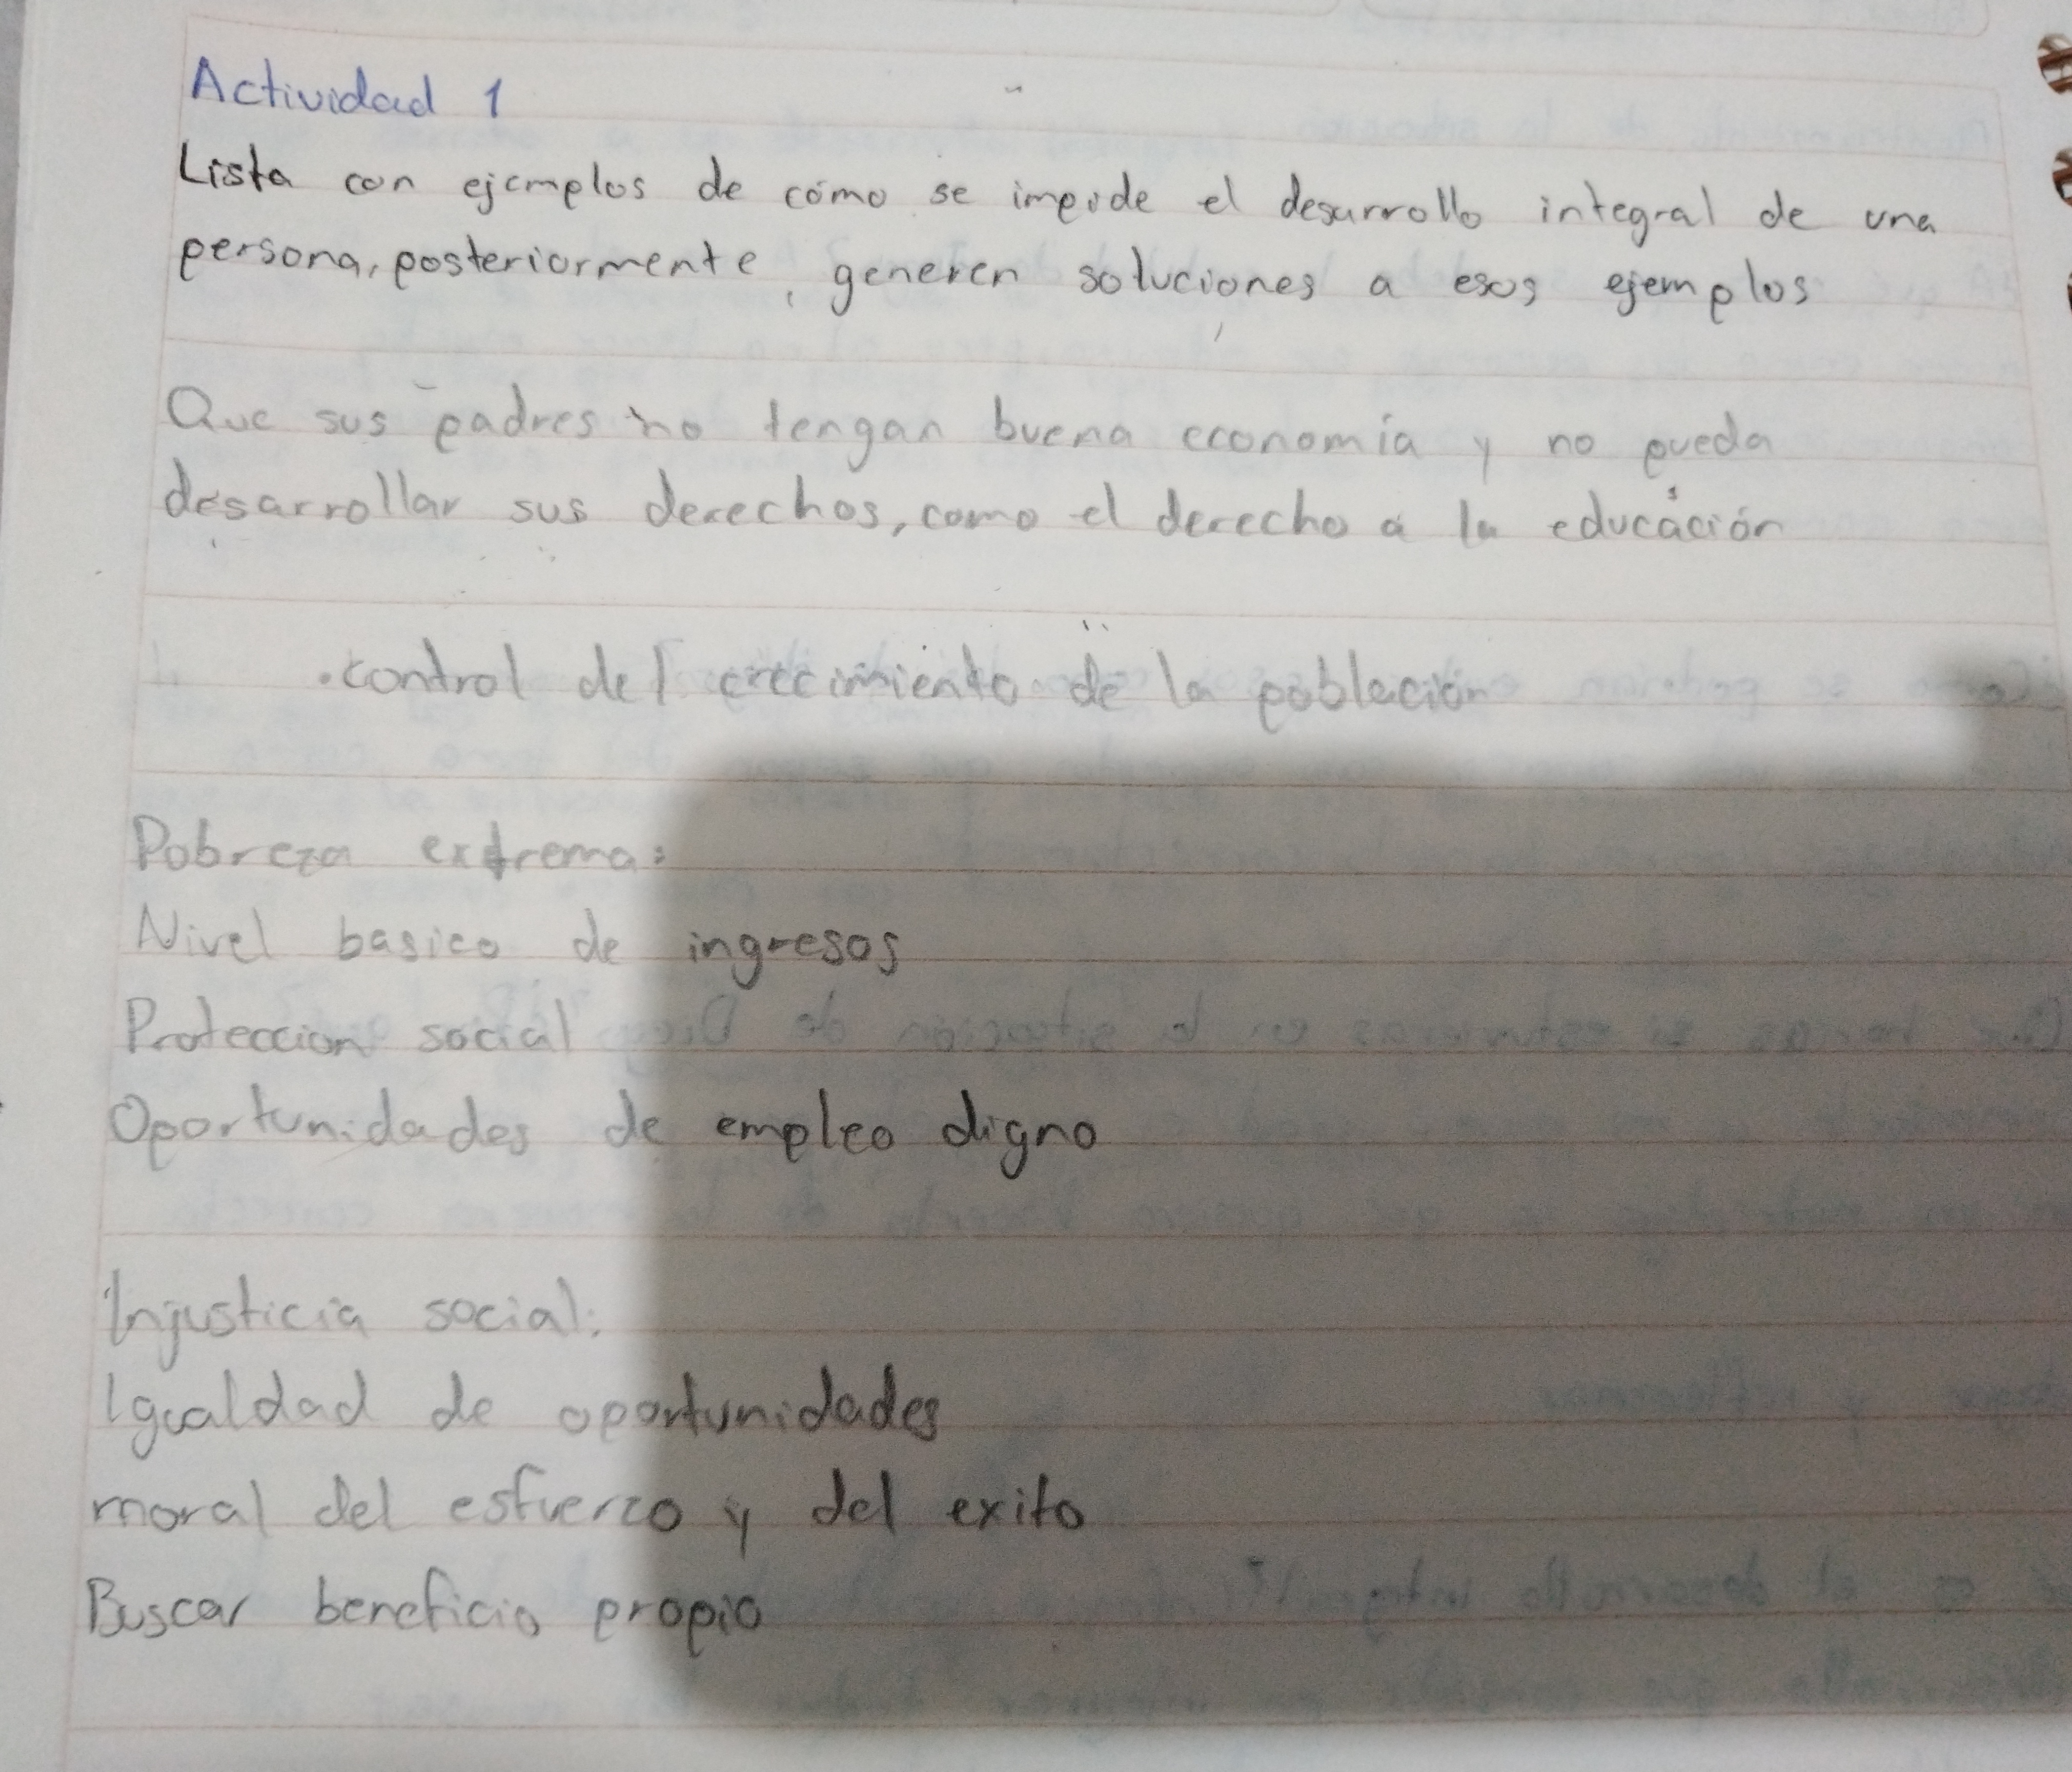 Actividad 1
Lista con ejemplos de cómo se impide el desarrollo integral de una
persona, posteriormente, generen soluciones a esos ejemplos
Que sus padres no tengan buena economía y no pueda
desarrollar sus derechos, como el derecho a la educación
.control del crecimiento de la población
Pobreza extrema:
Nivel basico de ingresos
Proteccion social
Oportunidades de empleo digno
Injusticia social:
Igualdad de oportunidades
moral del esfuerzo y del exito
Buscar beneficio propio